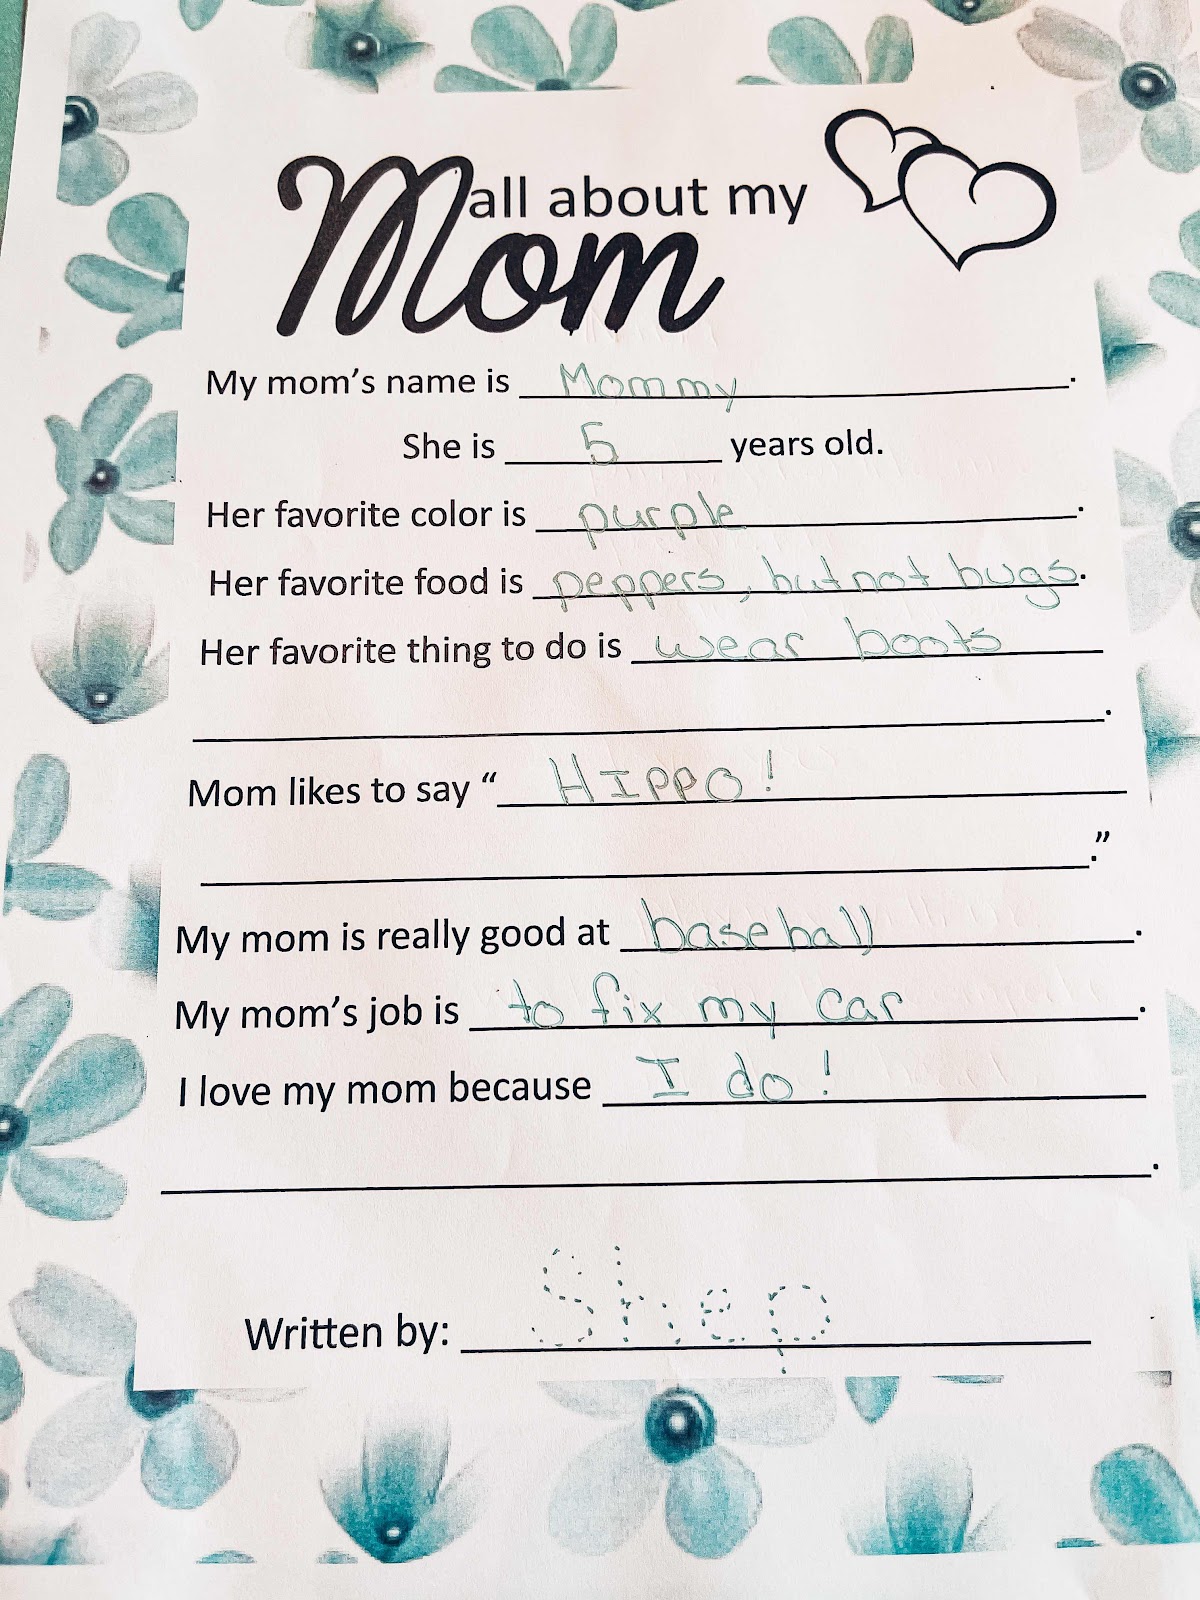 all about my
Mom
My mom's name is Mommy.
She is 5 years old.
Her favorite color is purple.
Her favorite food is peppers, but not bugs.
Her favorite thing to do is wear boots
.
Mom likes to say “Hippo!
.”
My mom is really good at baseball.
My mom's job is to fix my car.
I love my mom because I do!
.
Written by: Shep